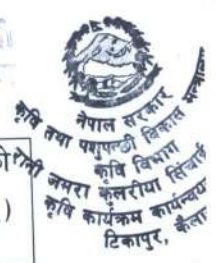 नेपाल सरकार
कृषि तथा पशुपन्छी विकास मन्त्रालय
कृषि विभाग
रानी जमरा कुलरीया सिंचाई
कृषि कार्यक्रम कार्यन्वयन
टिकापुर, कैला